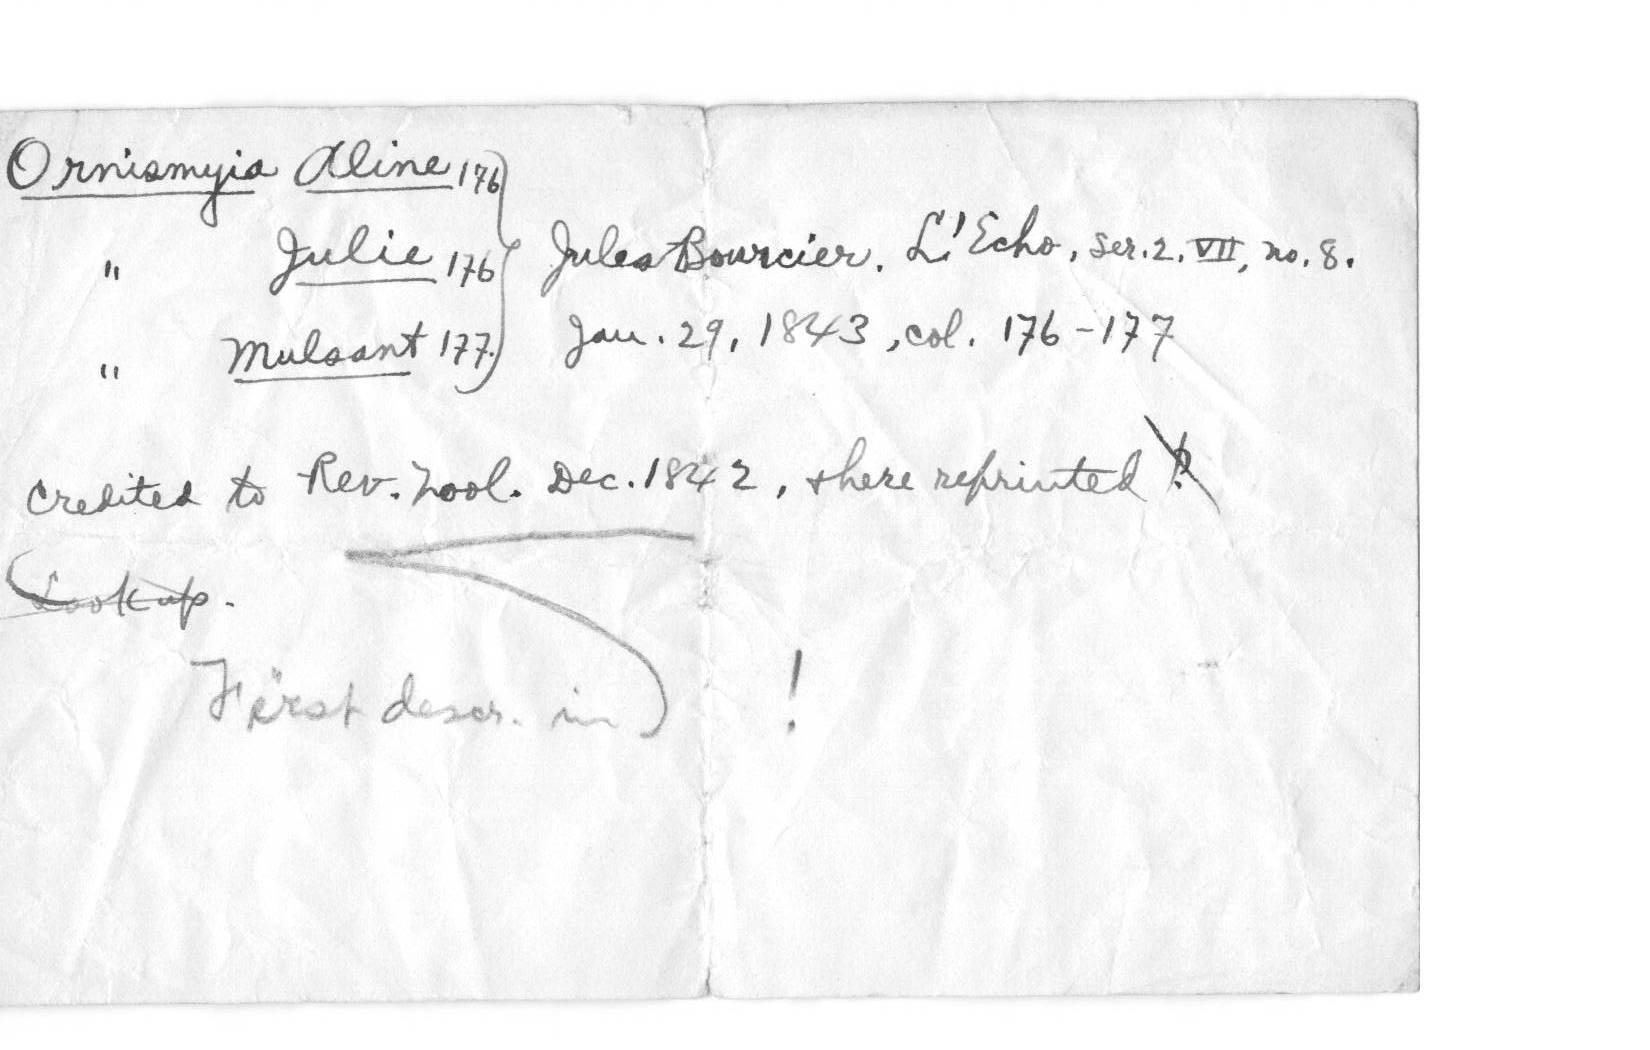 Ornismyia Aline 176
" Julie 176 Jules Bourcier. L'Echo, ser. 2. VII, no. 8.
" Mulsant 177. Jan. 29, 1843, col. 176-177
Credited to Rev. Zool. Dec. 1842, & here reprinted ?
Look up.
First descr. in !